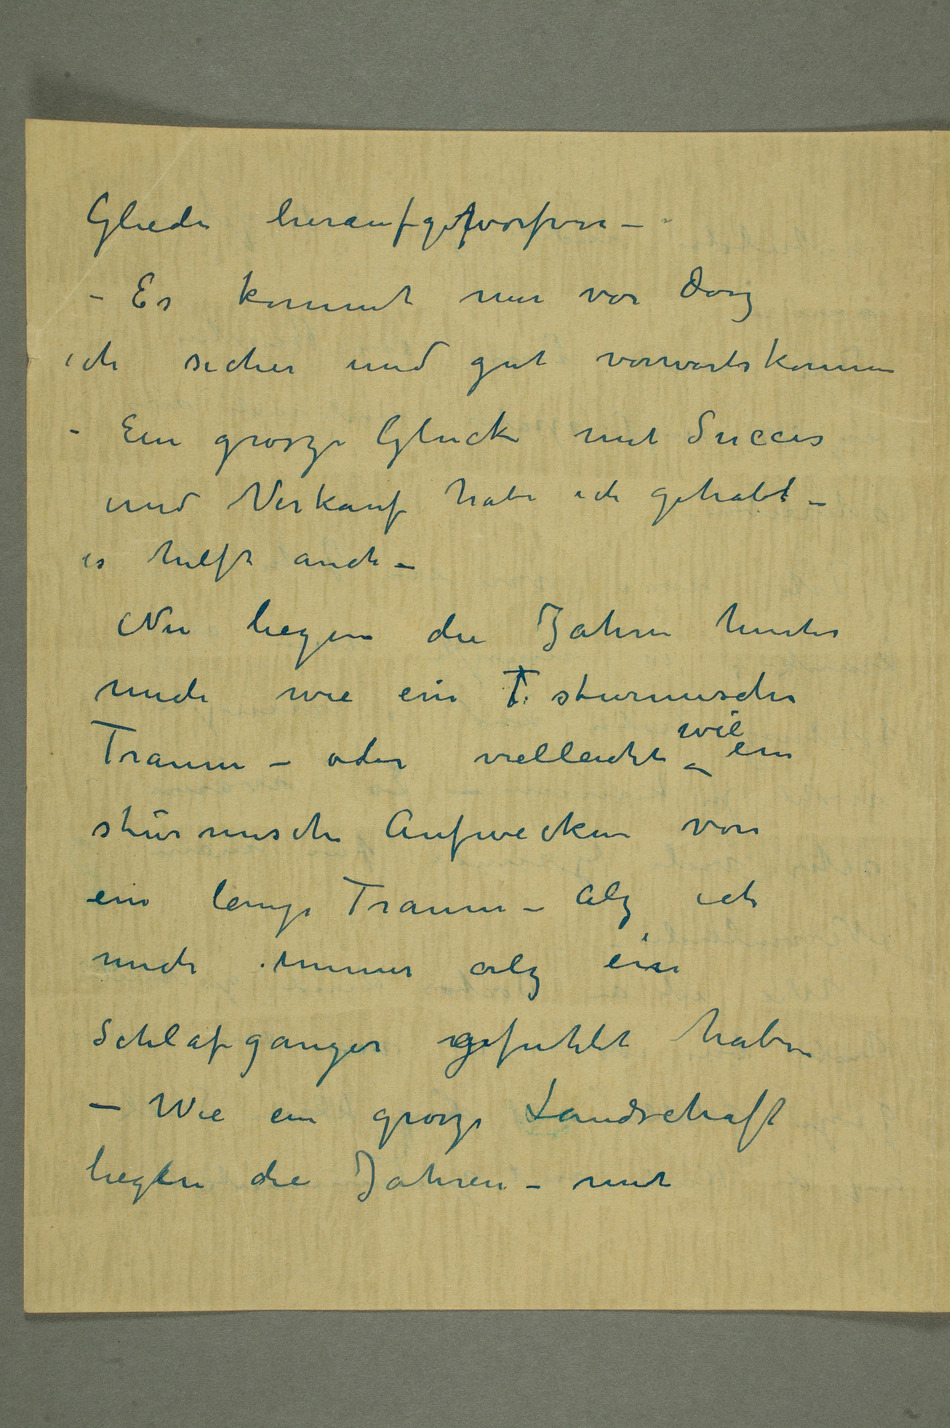 Glieder heraufgeworfen –
– Es kommt mir vor dasz
ich sicher und gut vorwärtskomme
– Ein grosze Glück mit Succes
und Verkauf habe ich gehabt –
es hilft auch –
Nu liegen die Jahren hinter
mich wie ein T sturmische
Traum – oder vielleicht wie ein
stürmische Aufwecken von
ein lange Traum – alz ich
mich immer alz ein
Schlafganger gefuhlt habe
– Wie ein grosze Landschaft
liegen die Jahren – mit